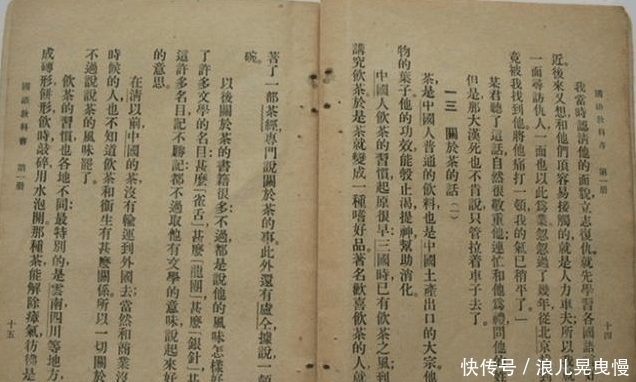 國語教科書 第一册
我當時認清他的面貌立志復仇就先學習各國語
近後來又想和他們頂容易接觸的就是人力車夫所以
一面尋訪仇人一面也以此爲業忽忽過了幾年從北京
竟被我找到他將他痛打一頓我的氣已稍平了」
某君聽了這話自然很敬重他連忙和他爲禮問他姓
但是那大漢死也不肯說只管拉着車子去了。
一三 關於茶的話(一)
茶是中國人普通的飲料也是中國土產出口的大宗他
物的葉子他的功效能彀止渴提神幫助消化。
中國人飲茶的習慣起原很早三國時已有飲茶之風到
講究飲茶於是茶就變成一種嗜好品著名歡喜飲茶的人就
十四
著了一部茶經專門說關於茶的事此外還有盧仝據說一頓
碗。
以後關於茶的書籍很多不過都是說他的風味怎樣好
了許多文學的名目甚麽「雀舌」甚麽「龍團」甚麽「銀針」甚
這許多名目記不勝記都不過取他有文學的意味說起來好
的意思。
在清以前中國的茶沒有輸運到外國去當然和商業沒
時候的人也不知道飲茶和衞生有甚麽關係所以一切關於
不過說說茶的風味罷了。
飲茶的習慣也各地不同最特別的是雲南四川等地方
成磚形餅形飲時敲碎用水泡開那種茶能解除瘴氣彷彿是
國語教科書 第一册
十五
快传号 / 浪儿晃曳慢